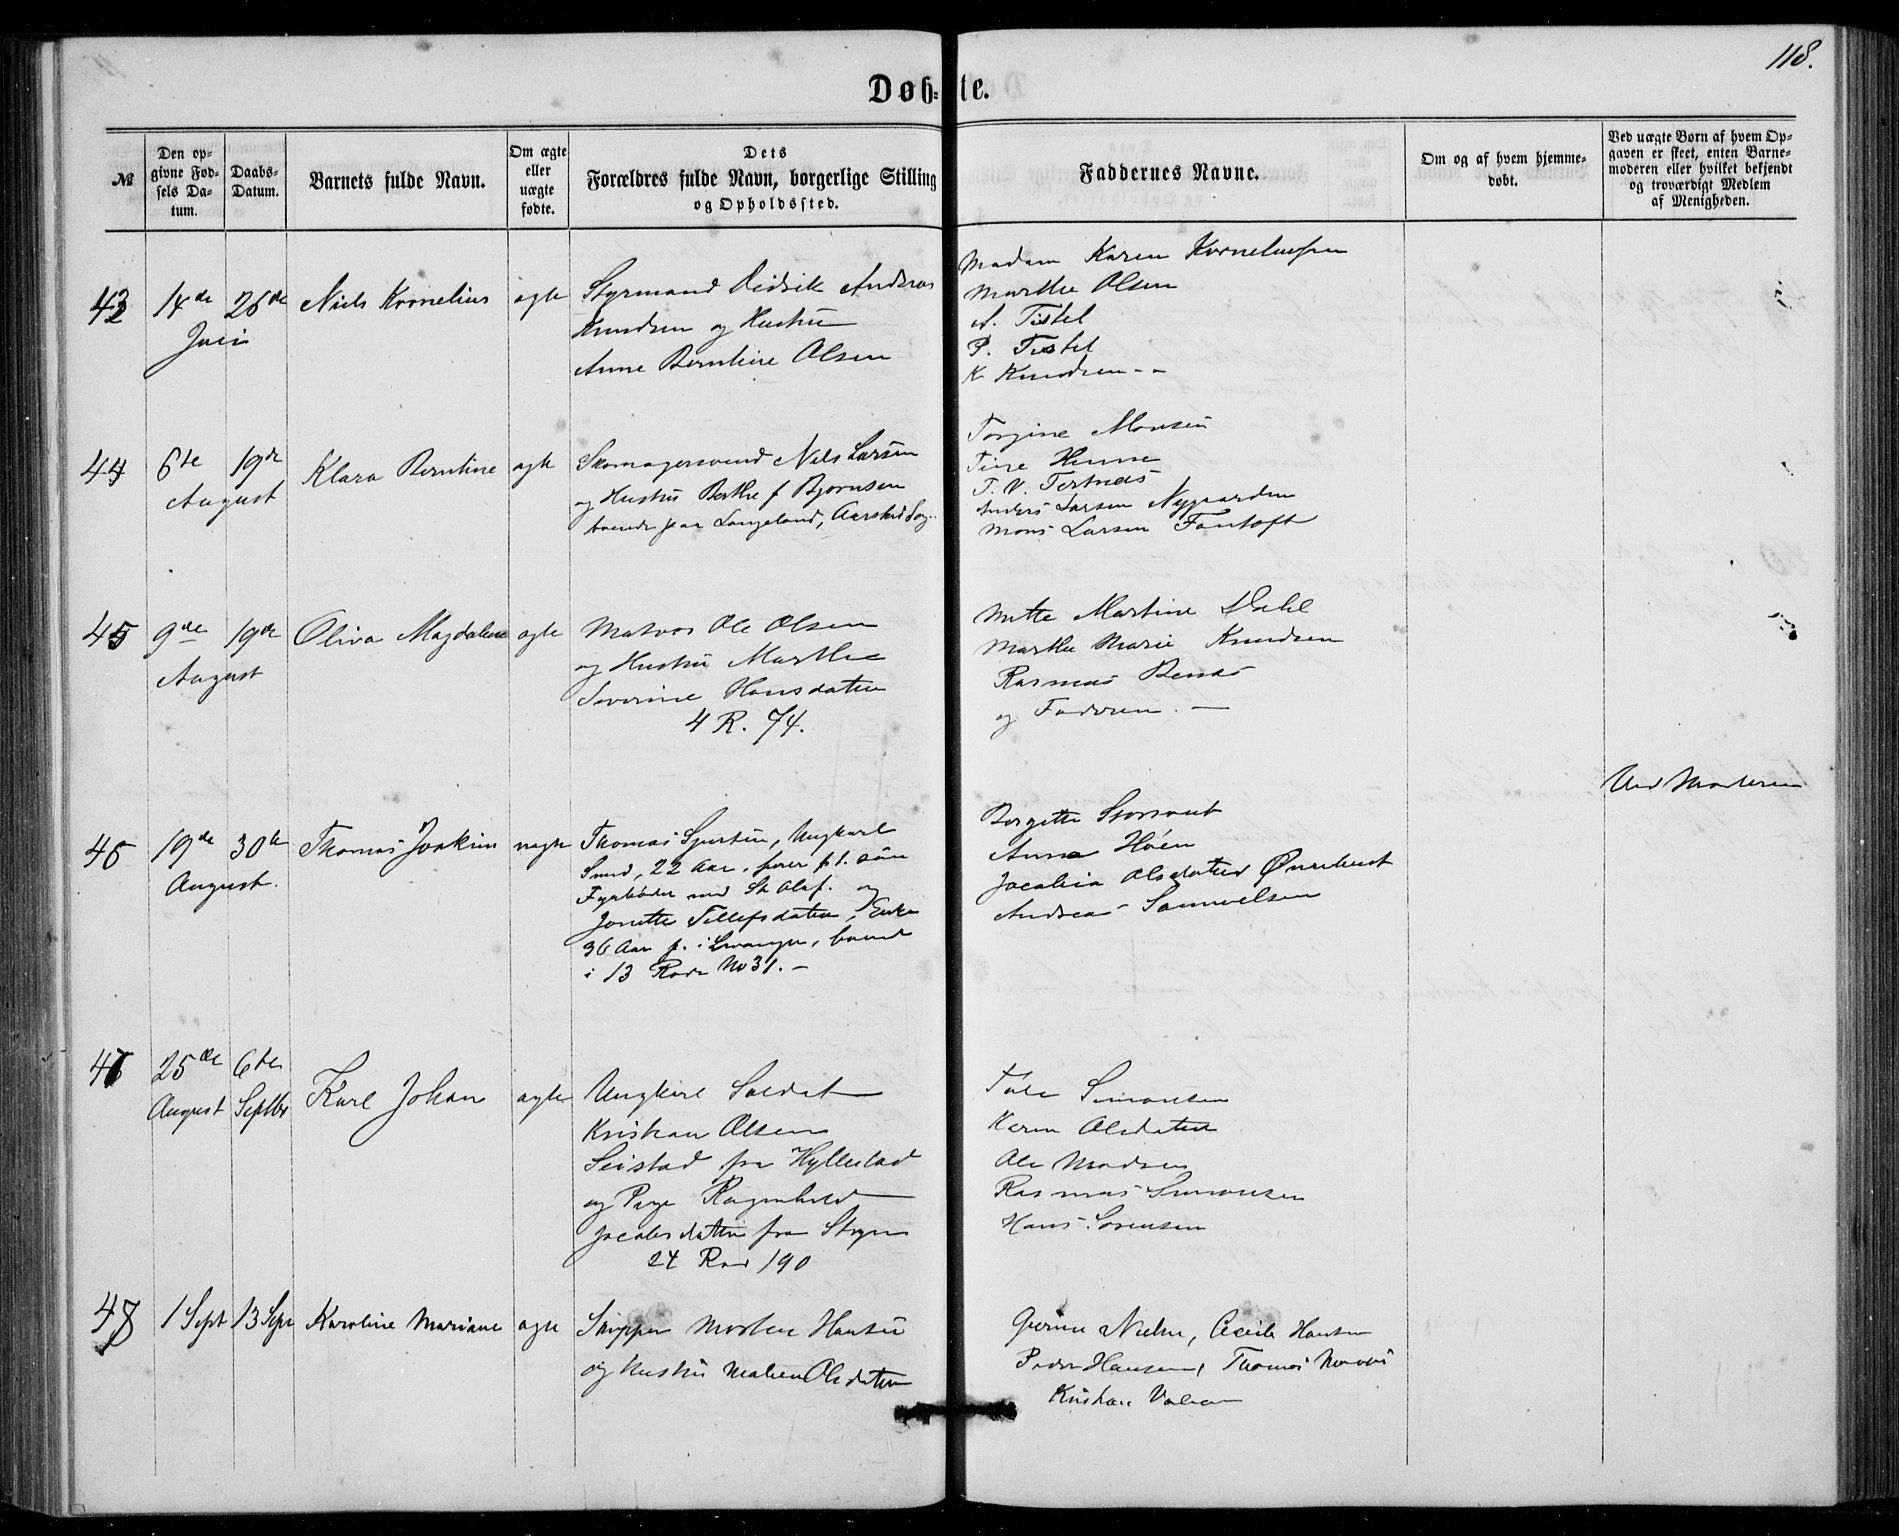 118.
Døb-te.
№
Den op-
givne Fød-
sels Da-
tum.
Daabs-
Datum.
Barnets fulde Navn.
Om ægte
eller
uægte
fødte.
Dets
Forældres fulde Navn, borgerlige Stilling
og Opholdssted.
Faddernes Navne.
Om og af hvem hjemme-
døbt.
Ved uægte Børn af hvem Op-
gaven er skeet, enten Barne-
moderen eller hvilket bekjendt
og troværdigt Medlem
af Menigheden.
43
14de
Juni
26de
Niels Kornelius
ægte
Styrmand Didrik Andreas
Knudsen og Hustru
Anne Berntine Olsen
Madam Karen Korneliussen
Marthe Olsen
A. Tistel
P. Tistel
K Knudsen --
44
6te
August
19de
Klara Berntine
ægte
Skomagersvend Nils Larsen
og Hustru Berthe f Bjørnsen
boende paa Langeland, Aarstad Sog
Torgine Monsen
Tine
T. V. Tertnæs
Anders Larsen Nygaarden
Mons Larsen Fantoft
45
9de
August
19de
Oliva Magdalene
ægte
Matros Ole Olsen
og Hustru Marthe
Severine Hansdatter
4 R. 74.
Mette Martine Dahl
Marthe Marie Knudsen
Rasmus
og Faderen. —
46
19de
August.
30te
Thomas Joakim
uægte
Thomas, Ungkarl
Smed, 22 Aar, farer p. t. som
Fyrbøder med St Olaf. og
Jonette Tellefsdatter, Enke
36 Aar f. i, boende
i 13 Rode No 31. —
Birgitte
Anna Høen
Jacobia Olsdatter
Andreas Samuelsen
Ved Moderen
47
25de
August
6te
Septbr
Karl Johan
ægte
Ungkarl Soldat
Kristian Olsen
Seistad fra Hyllestad
og Pige Ragnhild
Jacobsdatter fra Stryn
24 Rod 190
Simonsen
Karen Olsdatter
Ole Madsen
Rasmus Simonsen
Hans Sørensen
48
1 Sept
13 Sept
Karoline Mariane
ægte
Skipper Morten Hansen
og Hustru Malene Olsdatter
Nielsen, Cecilie Hansen
Peder Hansen, Thomas
Kristian